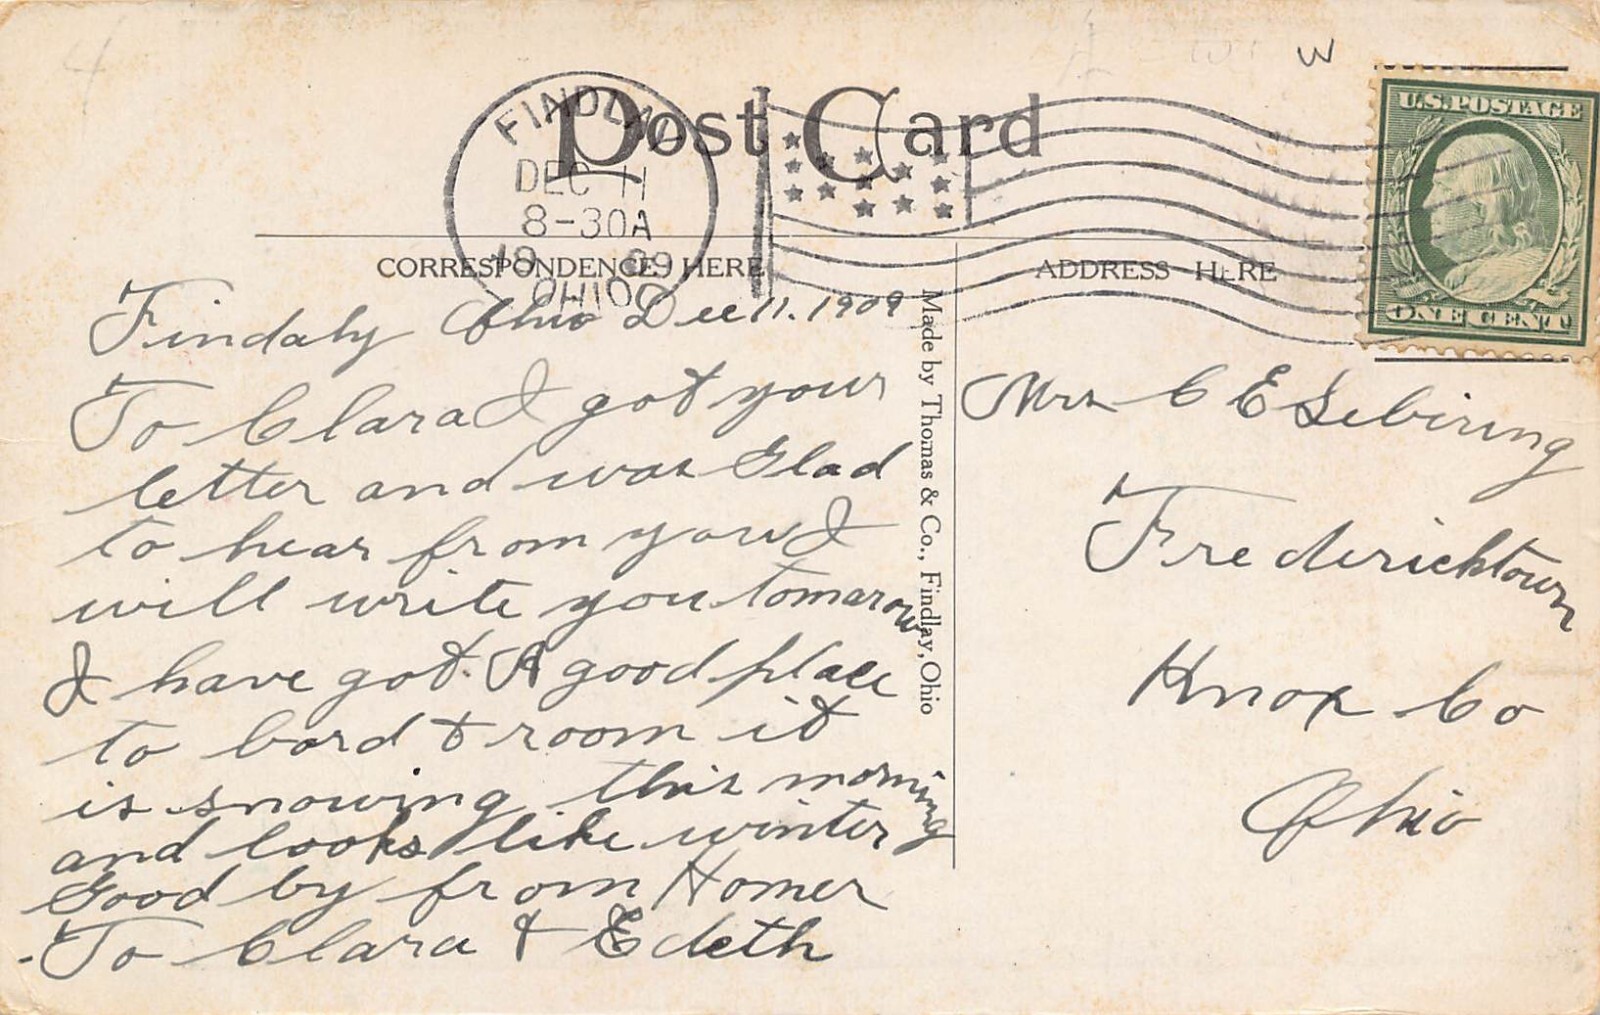 4
W
Post Card
FINDLAY
DEC 11
8-30A
1909
OHIO
U.S. POSTAGE
ONE CENT
CORRESPONDENCE HERE
ADDRESS HERE
Findaly Ohio Dec 11. 1909
To Clara I got your
letter and was Glad
to hear from you I
will write you tomarow
I have got. A good place
to bord & room it
is snowing this morning
and looks like winter
Good by from Homer
To Clara & Edeth
Made by Thomas & Co., Findlay, Ohio
Mrs C E Sebiring
Fredericktown
Knox Co
Ohio